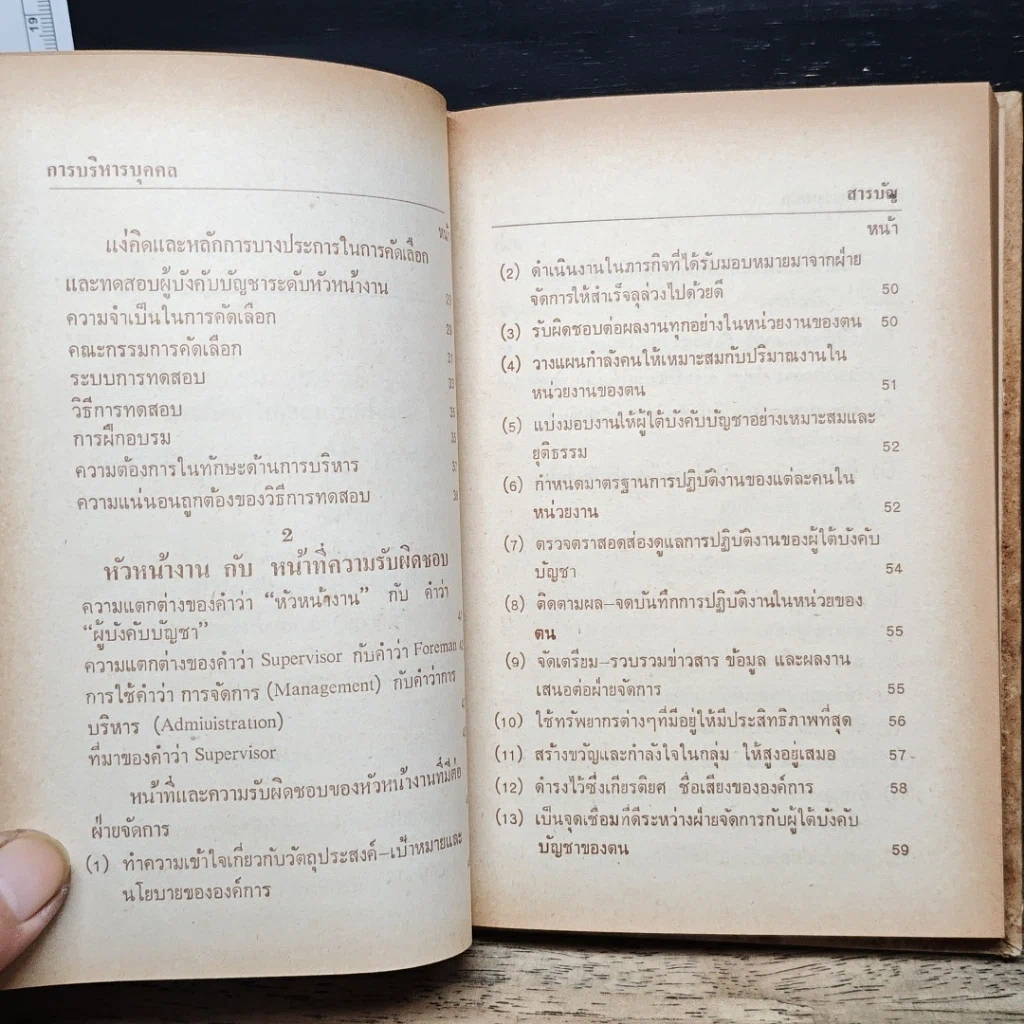 19
การบริหารบุคคล
แง่คิดและหลักการบางประการในการคัดเลือก
และทดสอบผู้บังคับบัญชาระดับหัวหน้างาน
ความจำเป็นในการคัดเลือก
คณะกรรมการคัดเลือก
ระบบการทดสอบ
วิธีการทดสอบ
การฝึกอบรม
ความต้องการในทักษะด้านการบริหาร
ความแน่นอนถูกต้องของวิธีการทดสอบ
2
หัวหน้างาน กับ หน้าที่ความรับผิดชอบ
ความแตกต่างของคำว่า “หัวหน้างาน” กับ คำว่า
“ผู้บังคับบัญชา”
ความแตกต่างของคำว่า Supervisor กับคำว่า Foreman
การใช้คำว่า การจัดการ (Management) กับคำว่าการ
บริหาร (Admiuistration)
ที่มาของคำว่า Supervisor
หน้าที่และความรับผิดชอบของหัวหน้างานที่มีต่อ
ฝ่ายจัดการ
(1) ทำความเข้าใจเกี่ยวกับวัตถุประสงค์–เป้าหมายและ
นโยบายขององค์การ
สารบัญ
หน้า
(2) ดำเนินงานในภารกิจที่ได้รับมอบหมายมาจากฝ่าย
จัดการให้สำเร็จลุล่วงไปด้วยดี 50
(3) รับผิดชอบต่อผลงานทุกอย่างในหน่วยงานของตน 50
(4) วางแผนกำลังคนให้เหมาะสมกับปริมาณงานใน
หน่วยงานของตน 51
(5) แบ่งมอบงานให้ผู้ใต้บังคับบัญชาอย่างเหมาะสมและ
ยุติธรรม 52
(6) กำหนดมาตรฐานการปฏิบัติงานของแต่ละคนใน
หน่วยงาน 52
(7) ตรวจตราสอดส่องดูแลการปฏิบัติงานของผู้ใต้บังคับ
บัญชา 54
(8) ติดตามผล–จดบันทึกการปฏิบัติงานในหน่วยของ
ตน 55
(9) จัดเตรียม–รวบรวมข่าวสาร ข้อมูล และผลงาน
เสนอต่อฝ่ายจัดการ 55
(10) ใช้ทรัพยากรต่างๆที่มีอยู่ให้มีประสิทธิภาพที่สุด 56
(11) สร้างขวัญและกำลังใจในกลุ่ม ให้สูงอยู่เสมอ 57
(12) ดำรงไว้ซึ่งเกียรติยศ ชื่อเสียงขององค์การ 58
(13) เป็นจุดเชื่อมที่ดีระหว่างฝ่ายจัดการกับผู้ใต้บังคับ
บัญชาของตน 59